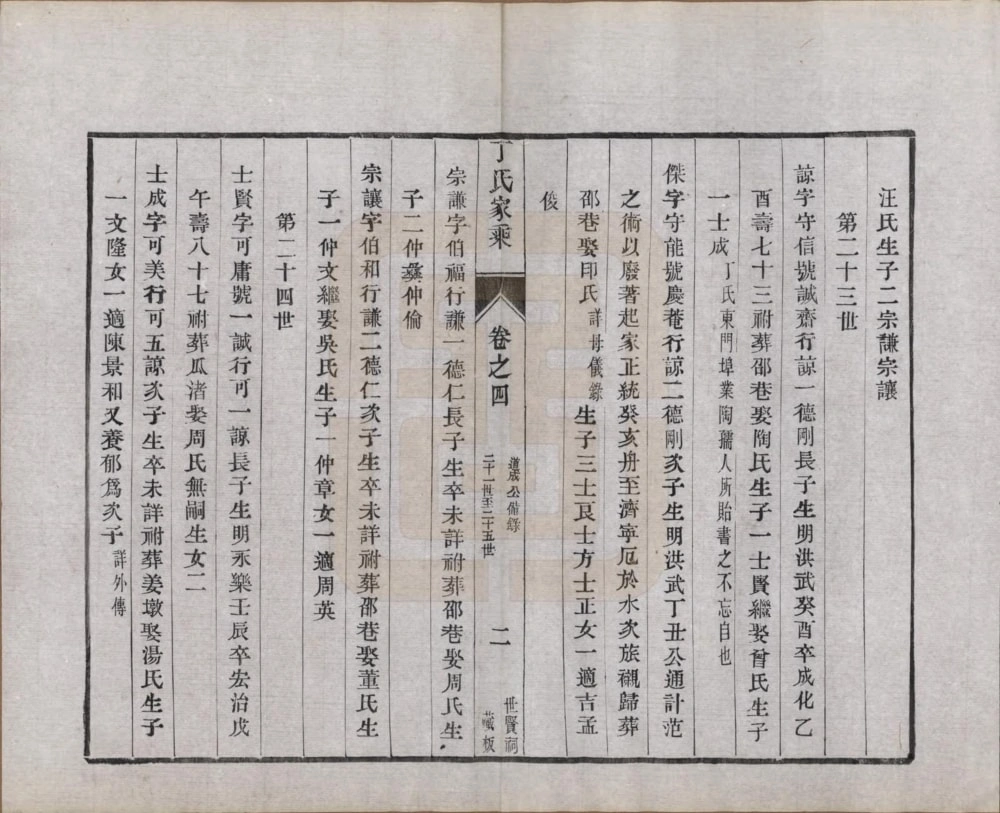 汪氏生子二宗謙宗讓
第二十三世
諒字守信號誠齋行諒一德剛長子生明洪武癸酉卒成化乙
酉壽七十三祔葬邵巷娶陶氏生子一士賢繼娶曾氏生子
一士成丁氏東門埠業陶孺人所貽書之不忘自也
傑字守能號慶菴行諒二德剛次子生明洪武丁丑公通計范
之術以廢著起家正統癸亥舟至濟寧厄於水次旅櫬歸葬
邵巷娶印氏詳母儀錄生子三士良士方士正女一適吉孟
俊
丁氏家乘
卷之四
道成公備錄
二十一世至二十五世
二
世賢祠
藏板
宗謙字伯福行謙一德仁長子生卒未詳祔葬邵巷娶周氏生
子二仲彝仲倫
宗讓字伯和行謙二德仁次子生卒未詳祔葬邵巷娶董氏生
子一仲文繼娶吳氏生子一仲章女一適周英
第二十四世
士賢字可庸號一誠行可一諒長子生明永樂壬辰卒宏治戊
午壽八十七祔葬瓜渚娶周氏無嗣生女二
士成字可美行可五諒次子生卒未詳祔葬姜墩娶湯氏生子
一文隆女一適陳景和又養郁為次子詳外傳